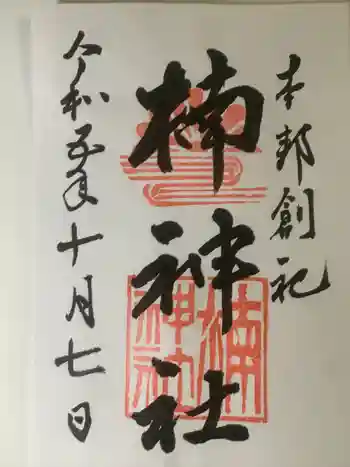 本邦創祀
楠神社
楠神社
令和五年十月七日